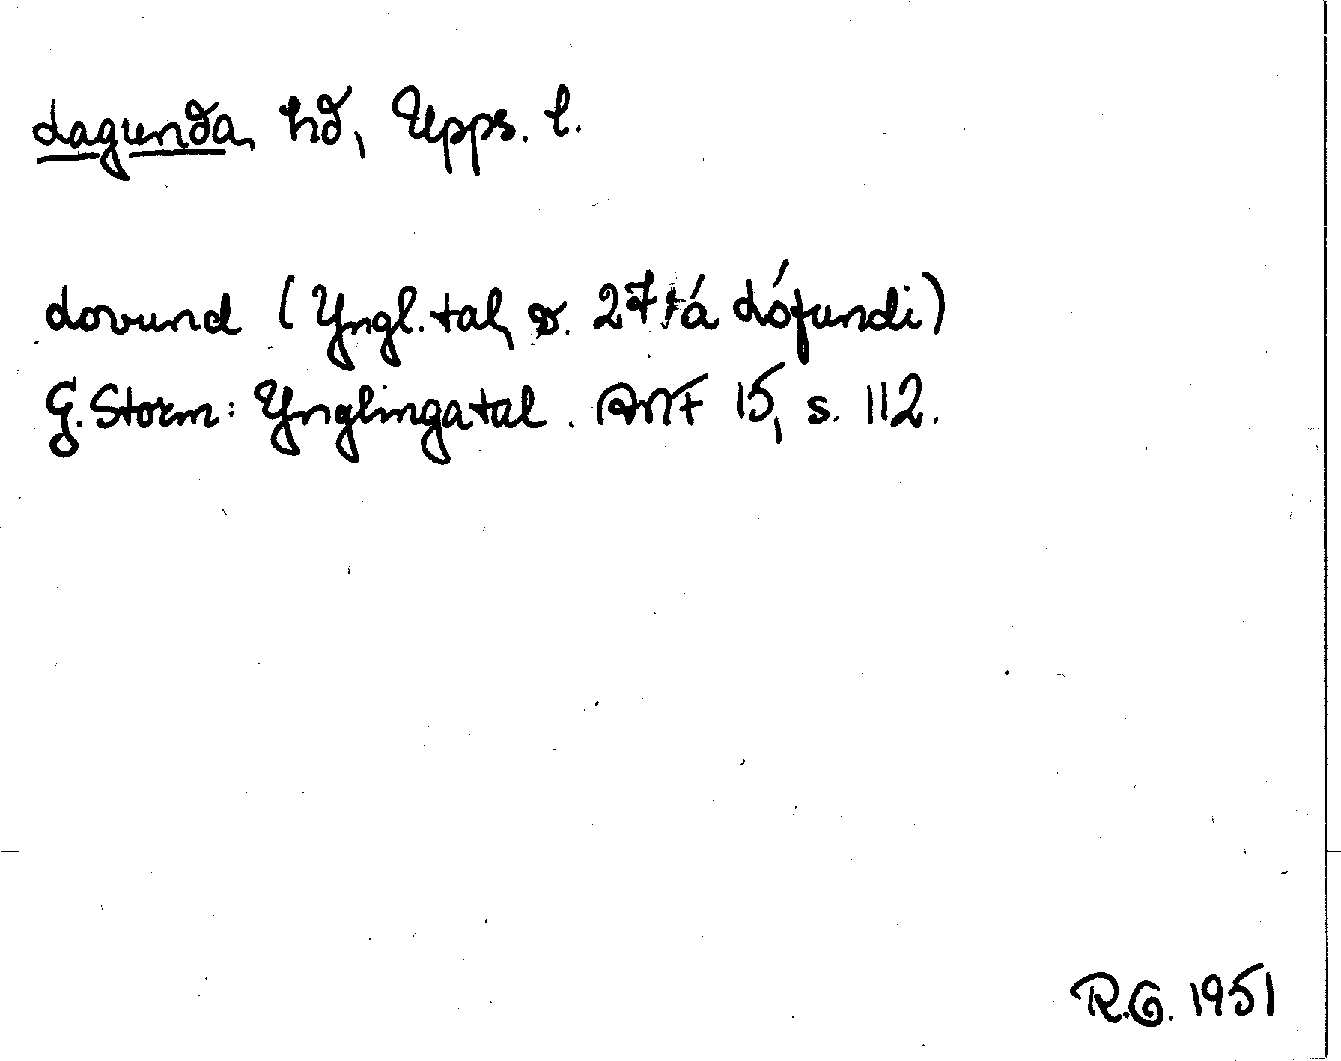 Lagunda hd, Upps. l.
Lovund (Yngl.tal, v. 27: á Lófundi)
G. Storm: Ynglingatal. ANF 15, s. 112.
R.G. 1951